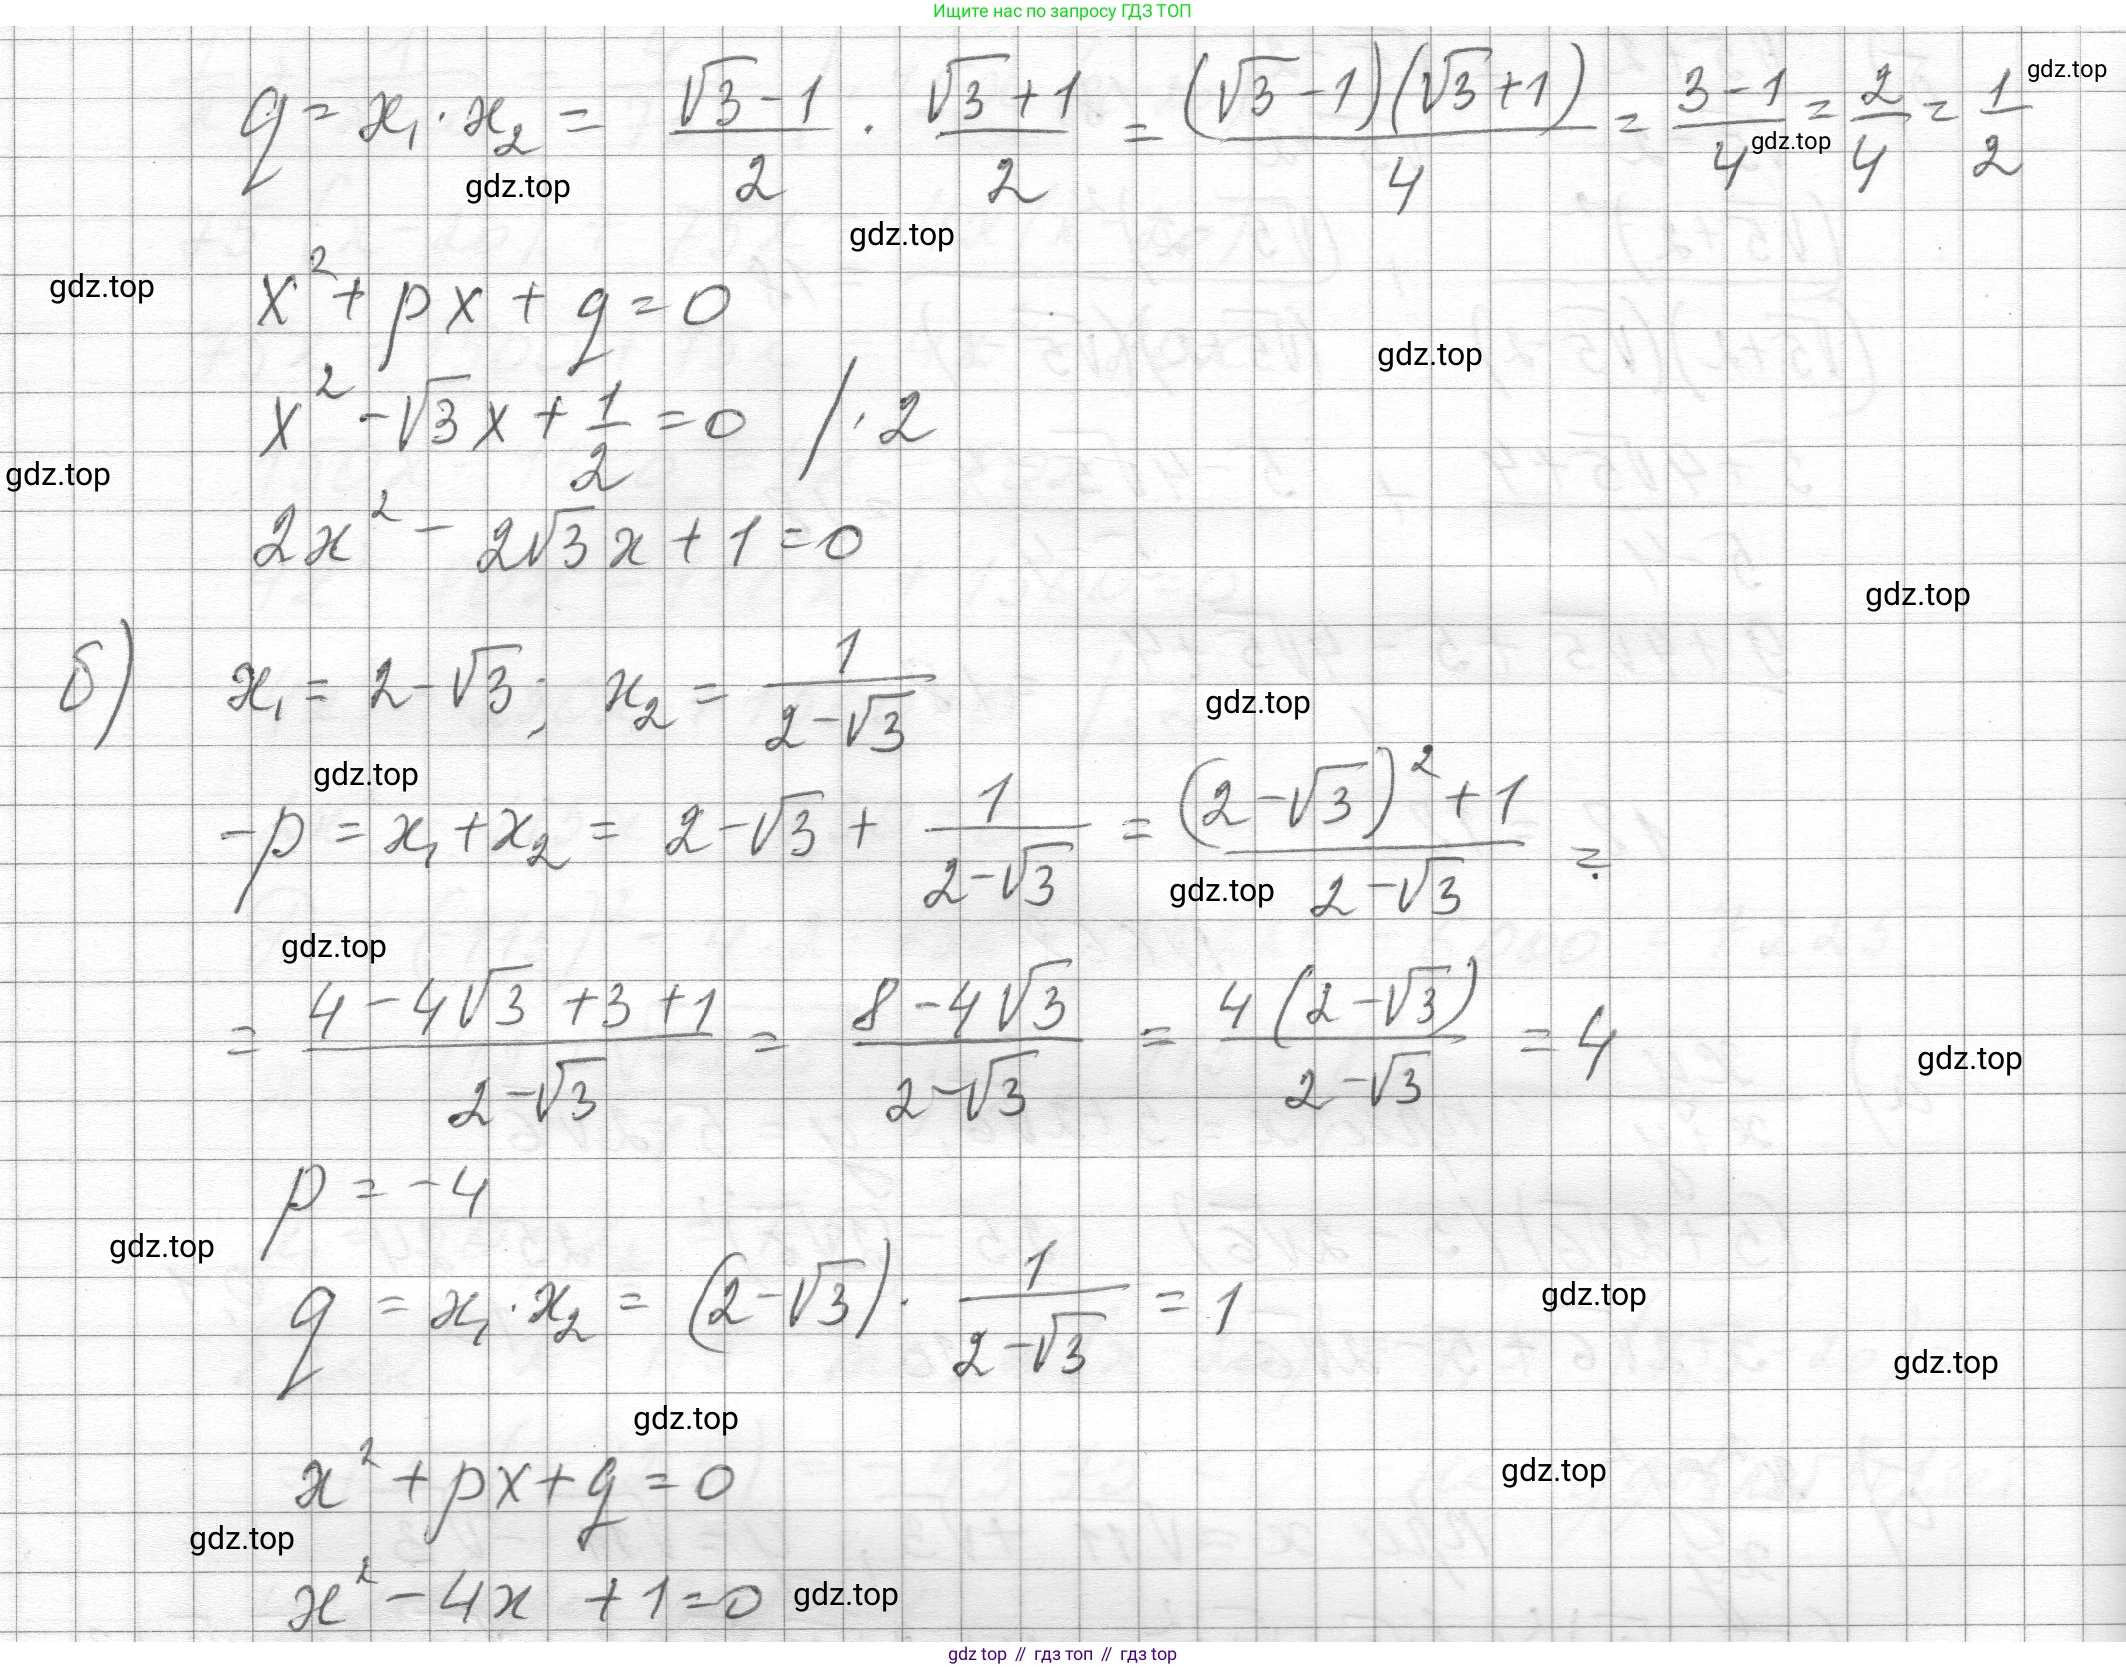 Ищите нас по запросу ГДЗ ТОП
q = x₁ · x₂ = (√3 - 1)/2 · (√3 + 1)/2 = ((√3 - 1)(√3 + 1))/4 = (3 - 1)/4 = 2/4 = 1/2
gdz.top
gdz.top
gdz.top
gdz.top
gdz.top
x² + px + q = 0
gdz.top
x² - √3x + 1/2 = 0 / · 2
gdz.top
2x² - 2√3x + 1 = 0
gdz.top
б) x₁ = 2 - √3; x₂ = 1/(2 - √3)
gdz.top
gdz.top
-p = x₁ + x₂ = 2 - √3 + 1/(2 - √3) = ((2 - √3)² + 1)/(2 - √3) =
gdz.top
gdz.top
= (4 - 4√3 + 3 + 1)/(2 - √3) = (8 - 4√3)/(2 - √3) = (4(2 - √3))/(2 - √3) = 4
gdz.top
p = -4
gdz.top
q = x₁ · x₂ = (2 - √3) · 1/(2 - √3) = 1
gdz.top
gdz.top
gdz.top
x² + px + q = 0
gdz.top
gdz.top
x² - 4x + 1 = 0
gdz.top
gdz top // гдз топ // гдз top